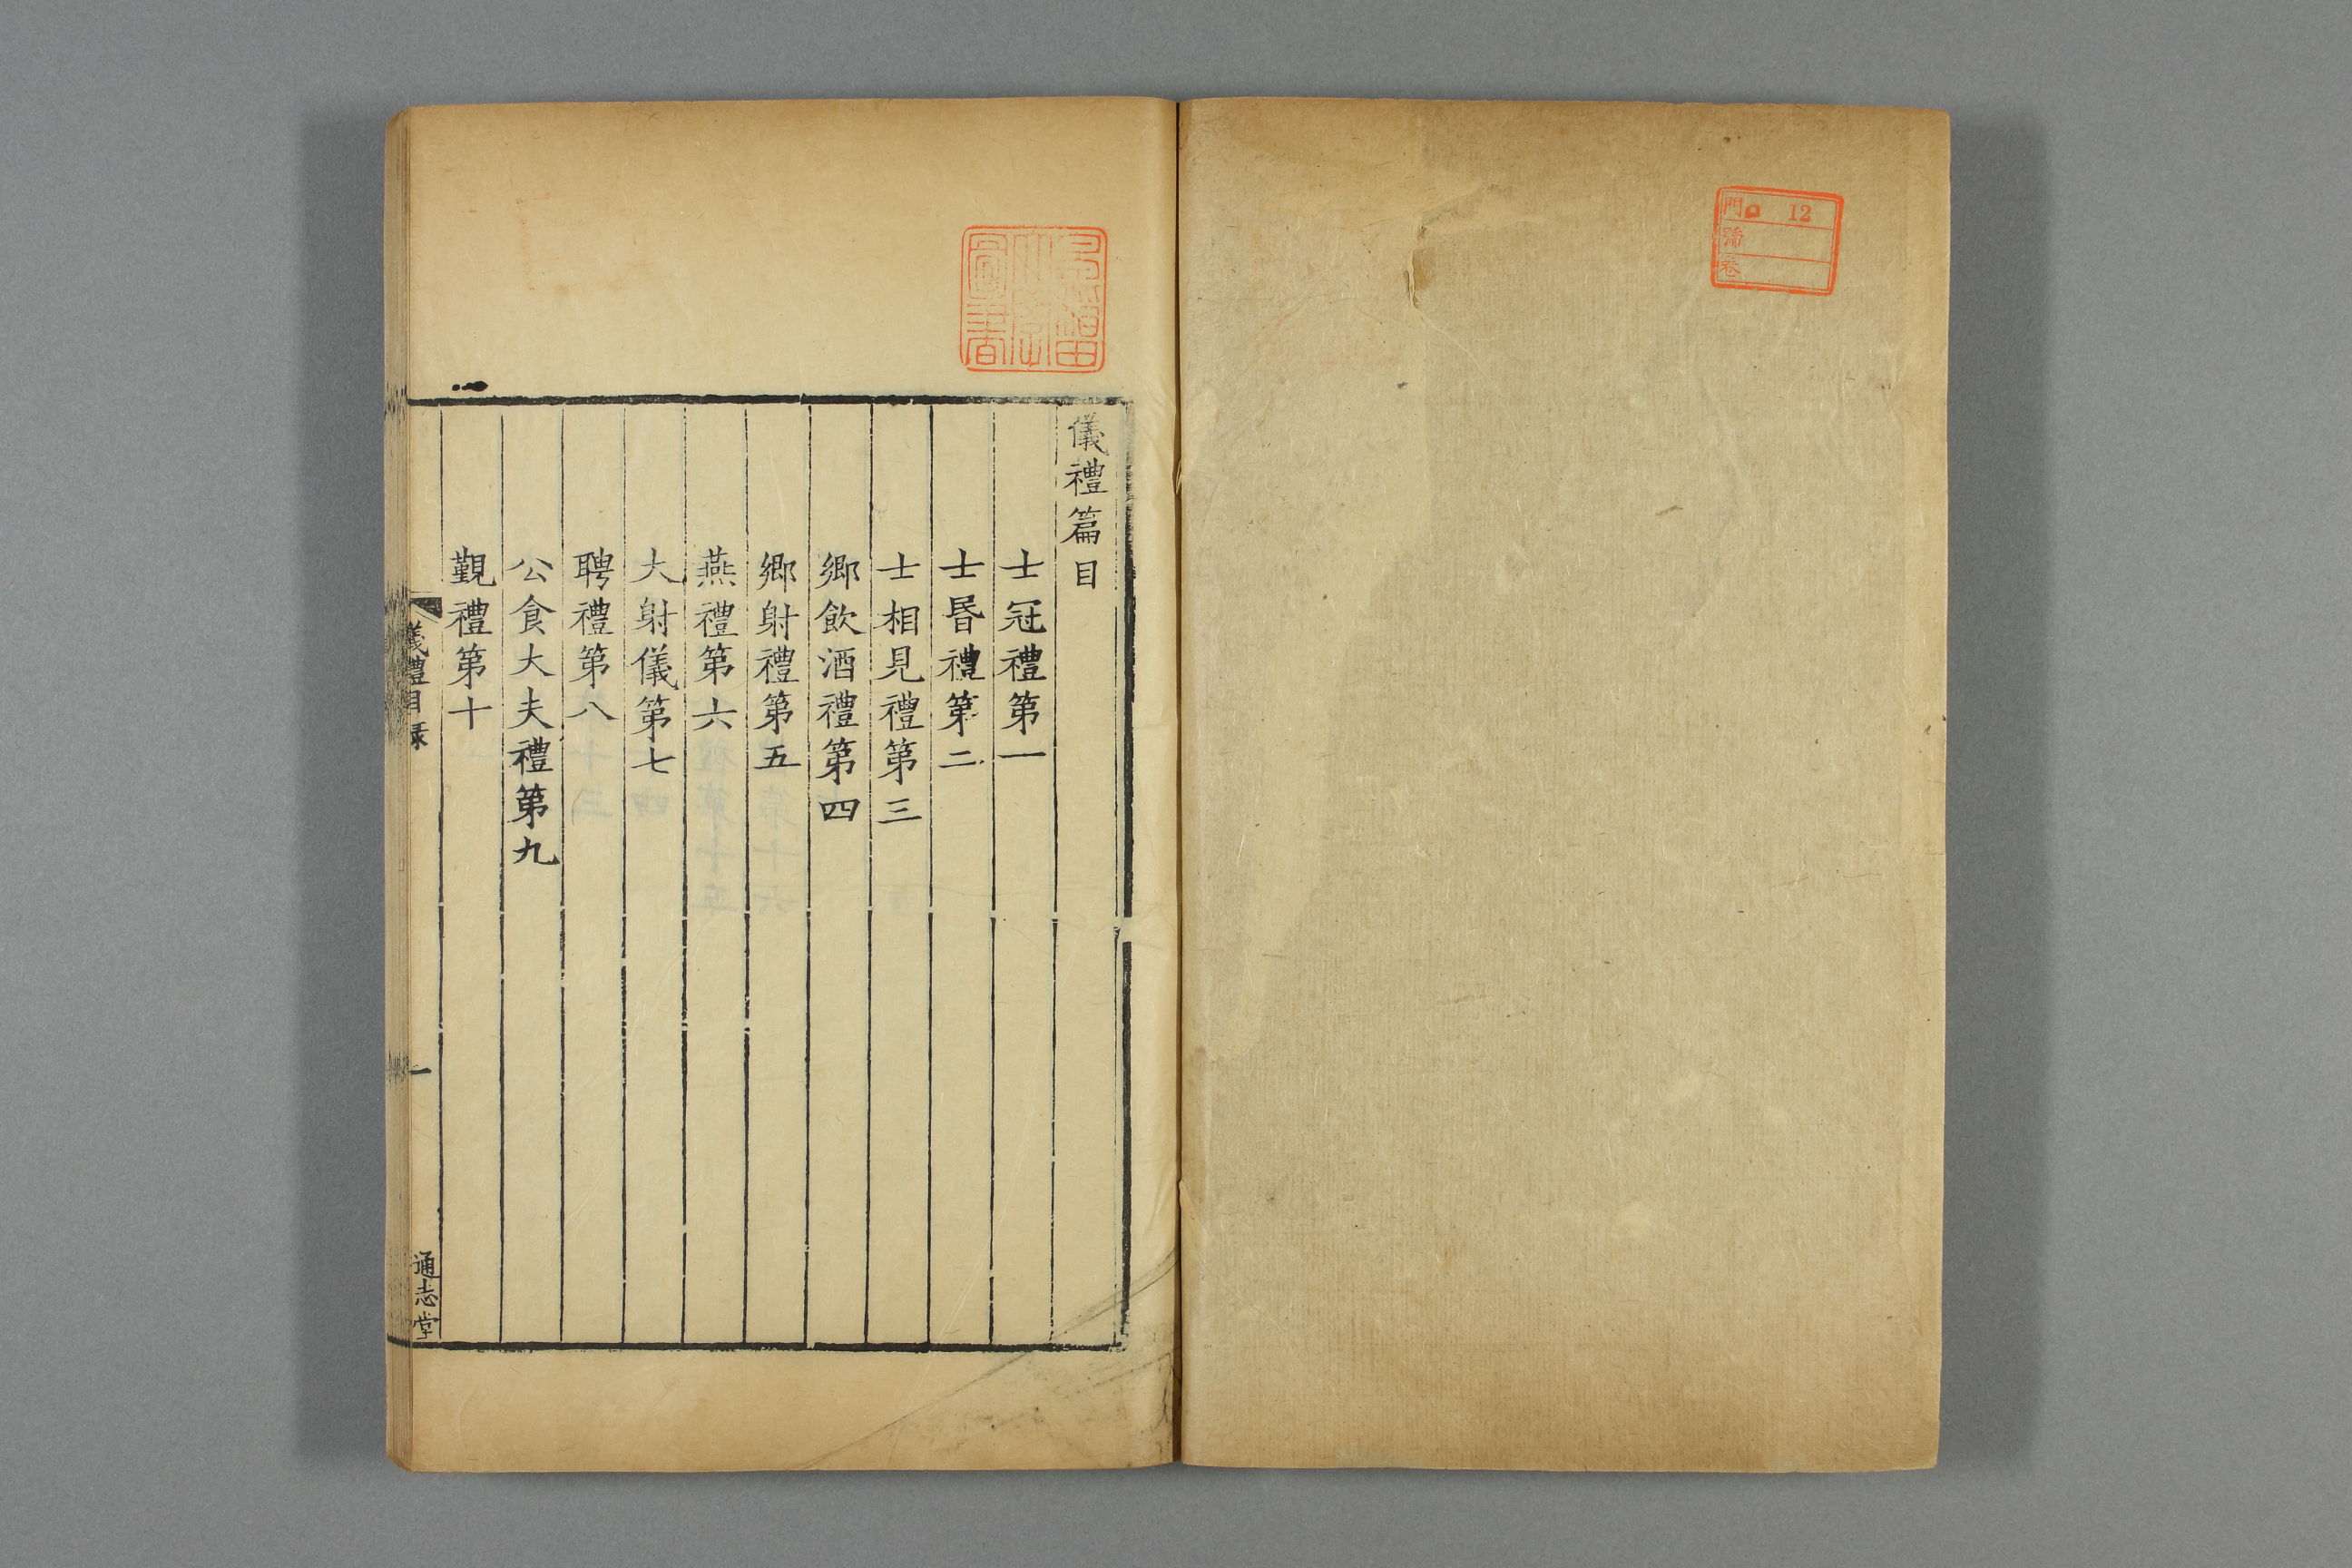 門 12
號
卷
儀禮篇目
士冠禮第一
士昬禮第二
士相見禮第三
鄉飲酒禮第四
鄉射禮第五
燕禮第六
大射儀第七
聘禮第八
公食大夫禮第九
覲禮第十
儀禮目録
一
通志堂